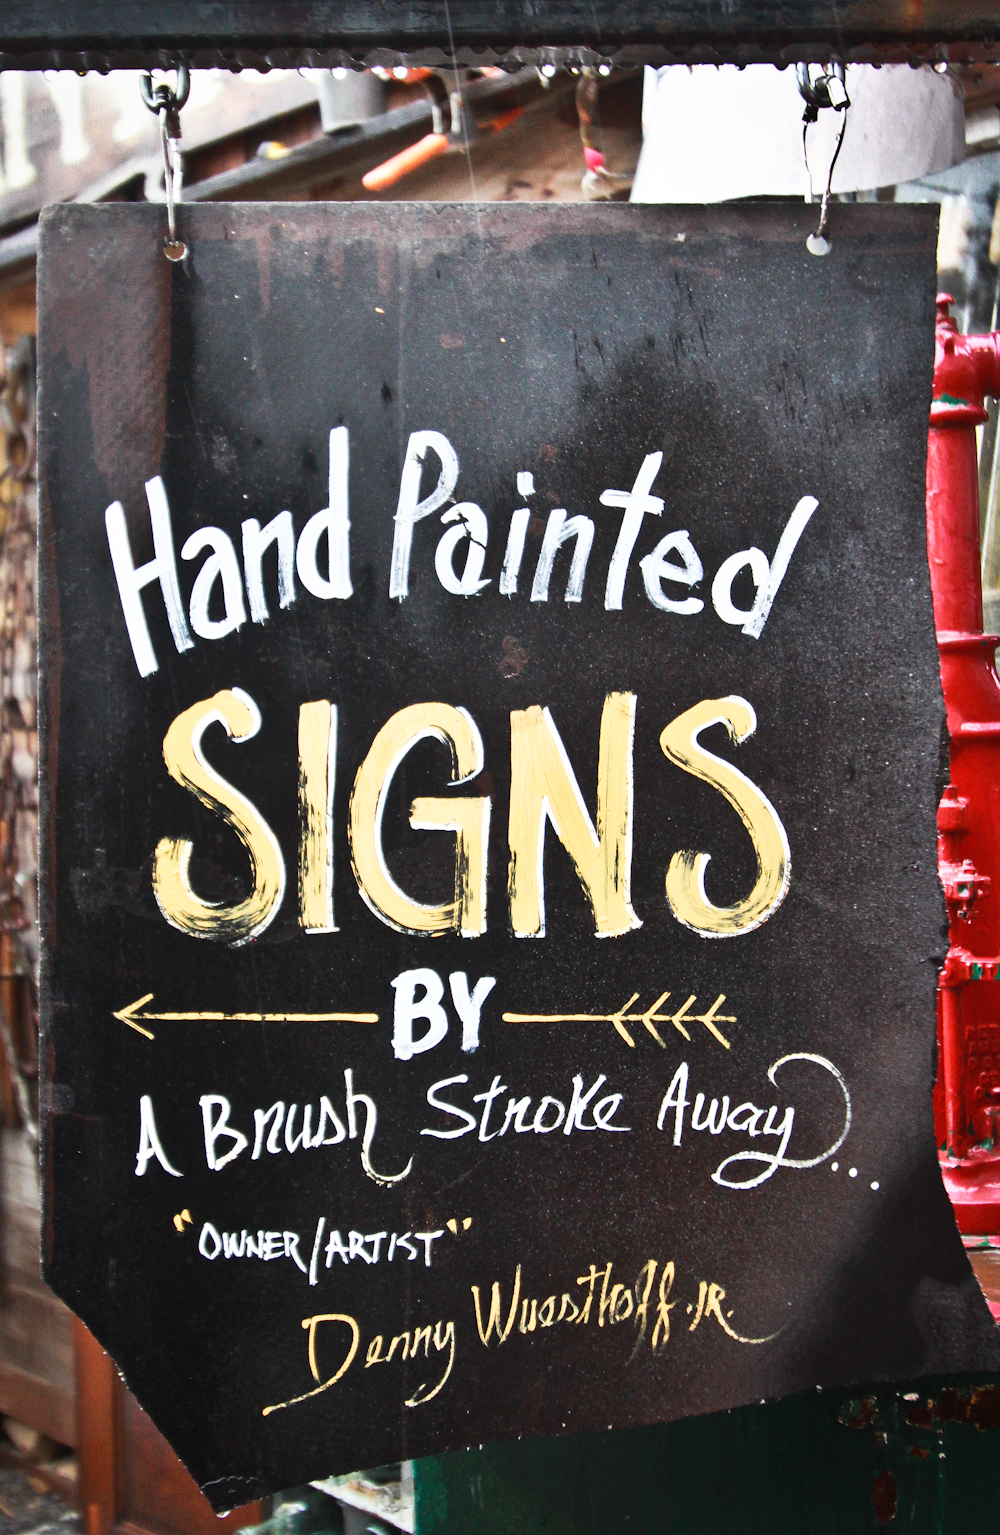 Hand Painted
SIGNS
BY
A Brush Stroke Away...
"OWNER/ARTIST"
Denny Wuesthoff.JR.